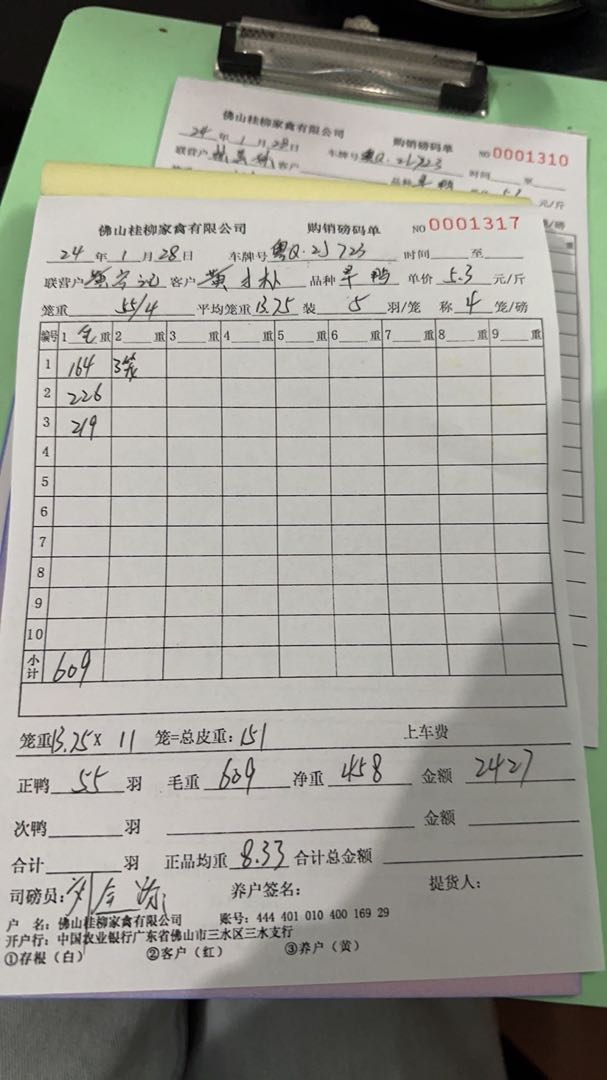 佛山桂柳家禽有限公司
24 年 1 月 28 日 购销磅码单 NO 0001310
联营户 客户 车牌号 粤Q·2J723 时间 至
品种 旱鸭 5.3 元/斤
佛山桂柳家禽有限公司 购销磅码单 NO 0001317
24 年 1 月 28 日 车牌号 粤Q·2J723 时间 至
联营户 客户 黄 朴 品种 旱鸭 单价 5.3 元/斤
笼重 55/4 平均笼重 13.75 装 5 羽/笼 称 4 笼/磅
编号 1 毛 重 2 重 3 重 4 重 5 重 6 重 7 重 8 重 9 重
1 164 3笼
2 226
3 219
4
5
6
7
8
9
10
小计 609
笼重 13.75 X 11 笼=总皮重: 151 上车费
正鸭 55 羽 毛重 609 净重 458 金额 2427
次鸭 羽 金额
合计 羽 正品均重 8.33 合计总金额
司磅员: 养户签名: 提货人:
户 名: 佛山桂柳家禽有限公司 账号: 444 401 010 400 169 29
开户行: 中国农业银行广东省佛山市三水区三水支行
①存根(白) ②客户(红) ③养户(黄)